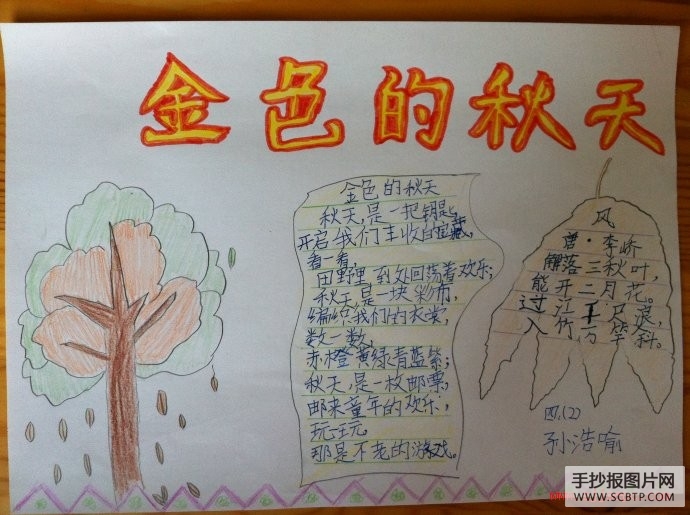 金色的秋天
金色的秋天
秋天,是一把钥匙,
开启我们丰收的宝藏,
看一看,
田野里到处回荡着欢乐;
秋天是一块彩布,
编织我们的衣裳,
数一数,
赤橙黄绿青蓝紫;
秋天,是一枚邮票,
邮来童年的欢乐,
玩一玩。
那是不老的游戏。
风
唐·李峤
解落三秋叶,
能开二月花。
过江千尺浪,
入竹万竿斜。
四.(2)
孙浩喻
手抄报图片网
WWW.SCBTP.COM